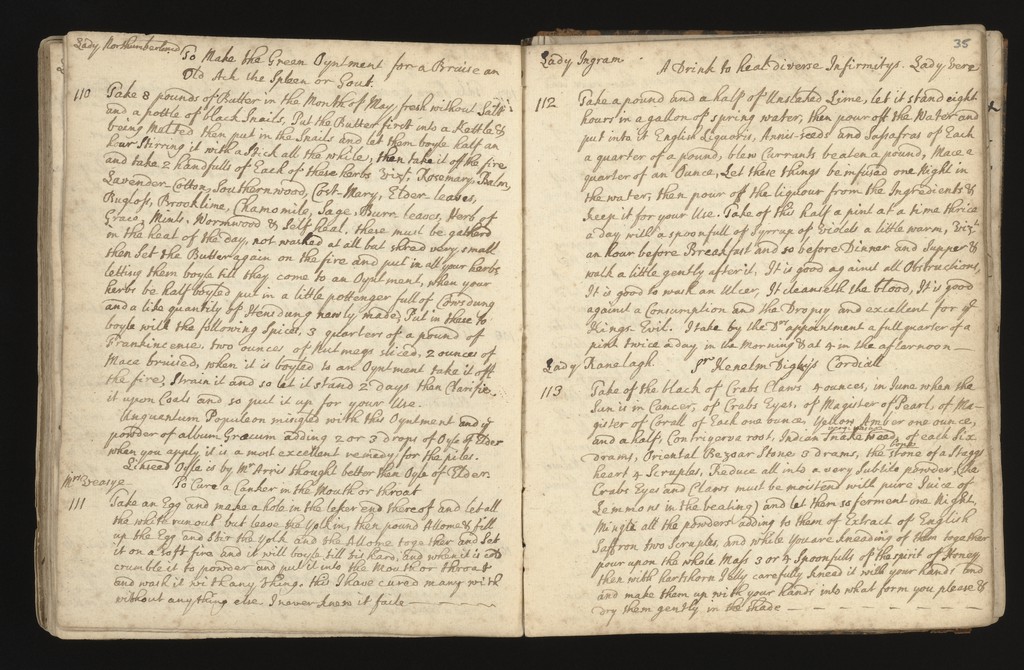 Lady Northumberland
To Make the Green Oyntment for a Brúise an
Old Ach the Spleen or Gout.
110 Take 8 pounds of Butter in the Month of May, fresh without Salt
and a pottle of black Snails, Put the Butter first into a Kettle &
being Melted then put in the Snails and let them boyle half an
hour Stirring it with a Stick all the while, then take it of the fire
and take 2 handfulls of Each of these herbs Vizt. Rosemary, Balm,
Lavender-Cotton, Southernwood, Cost-Mary, Elder-leaves,
Buglofs, Brooklime, Chamomile, Sage, Burr-leaves, Herb of
Grace, Mints, Wormwood & Self heal. these must be gatherd
in the heat of the day, not washed at all but shred very small
then Set the Butter again on the fire and put in all your herbs
letting them boyle till they come to an Oyntment, when your
herbs be half boyled put in a little pottenger full of Cowsdung
and a like quantity of Hensdung newly made, Put in these to
boyle with the following Spices, 3 quarters of a pound of
Frankincense, two ounces of Nutmegs sliced, 2 ounces of
Mace bruised, when it is boyled to an Oyntment take it off
the fire, Strain it and so let it stand 2 days then Clarifie
it upon Coals and so put it up for your Use.
Unguentum Populeon mingled with this Oyntment and ye
powder of album Græcum adding 2 or 3 drops of Oyle of Elder
when you apply it is a most excellent remedy for the piles.
Linseed Oyle is by Mr Arris thought better then Oyle of Elder.
To Cure a Canker in the Mouth or throat
111 Take an Egg and make a hole in the lefser end thereof and let all
the white run out but leave the Yolk in, then pound Allome & fill
up the Egg and Stir the Yolk and the Allome together and Set
it on a soft fire and it will boyle till tis hard, and when it is cold
crumble it to powder and put it into the Mouth or throat
and wash it with any thing, this I have cured many with
without any thing else I never knew it faile
35
Lady Ingram
A Drink to heal diverse Infirmitys. Lady Vere
112 Take a pound and a half of Unslaked Lime, let it stand eight
hours in a gallon of spring water, then pour off the Water and
put into it English Liquoris, Annis-seeds and Sassafras of Each
a quarter of a pound, blew Currants beaten a pound, Mace a
quarter of an Ounce, Let these things be infused one Night in
the water, then pour off the liquour from the Ingredients &
keep it for your Use. Take of this half a pint at a time thrice
a day with a spoonfull of Syrrup of Violets a little warm, Vizt.
an hour before Breakfast and so before Dinner and Supper &
walk a little gently after it. It is good against all Obstructions,
It is good to wash an Ulcer, It cleanseth the blood, It is good
against a Consumption and the Dropsy and excellent for ye
Kings-Evil. I take by the Drs appointment a full quarter of a
pint twice a day in the Morning & at 4 in the afternoon
Lady Ranelagh. Sr Kenelm Digby's Cordiall
113 Take of the black of Crabs Claws 4 ounces, in June when the
Sun is in Cancer, of Crabs Eyes, of Magister of Pearl, of Ma-
gister of Corall of Each one ounce, Yellow Amber one ounce,
and a half, Contryerva root, Indian Snake weed, of each Six
drams, Oriental Bezoar Stone 3 drams, the bone of a Staggs
heart 4 Scruples, Reduce all into a very Subtile powder, (the
Crabs Eyes and Claws must be moistend with pure Juice of
Lemmons in the beating) and let them so ferment one Night,
Mingle all the powders adding to them of Extract of English
Saffron two Scruples, and while You are kneading of them together
pour upon the whole Mafs 3 or 4 Spoonfulls of the spirit of Honey
then with Hartshorn Jelly carefully knead it with your hands and
and make them up with your hands into what form you please &
dry them gently in the Shade